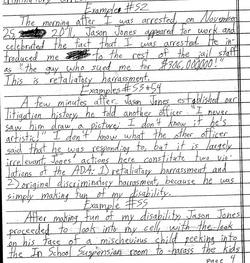 Example #52
The morning after I was arrested, on November
25, 2011, Jason Jones appeared for work and
celebrated the fact that I was arrested. He in
troduced me to the rest of the jail staff
as "the guy who sued me for $306,000,000!"
This is retaliatory harrassment.
Examples #53 & 54
A few minutes after Jason Jones established our
litigation history, he told another officer "I never
saw him draw a picture, I don't know if he's
artistic." I don't know what the other officer
said that he was responding to, but it is largely
irrelevant. Jones' actions here constitute two vio
lations of the ADA: 1) retaliatory harrassment and
2) original discriminatory harrassment, because he was
simply making fun of my disability.
Example #55
After making fun of my disability, Jason Jones
proceeded to look into my cell, with the look
on his face of a mischevious child peeking into
the In School Suspension room to harass the kids
page 9